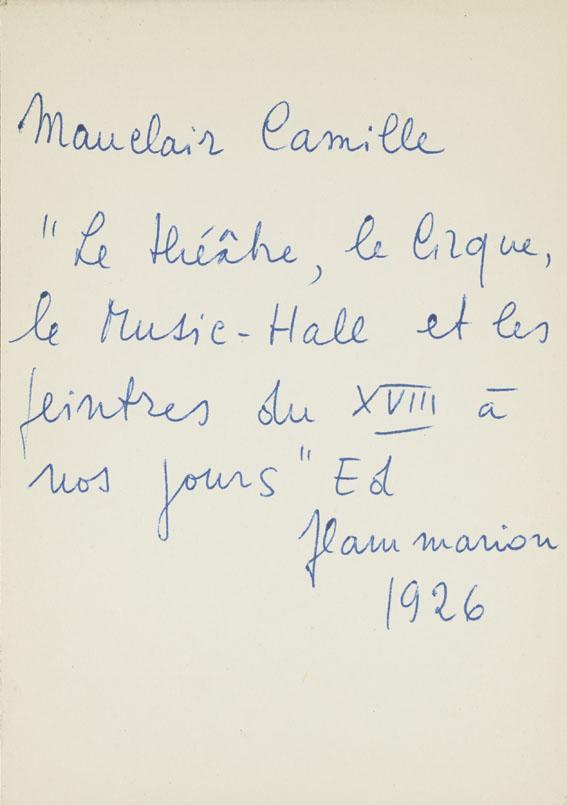 Mauclair Camille
"Le théâtre, le Cirque,
le Music-Hall et les
peintres du XVIII à
nos jours" Ed
flammarion
1926